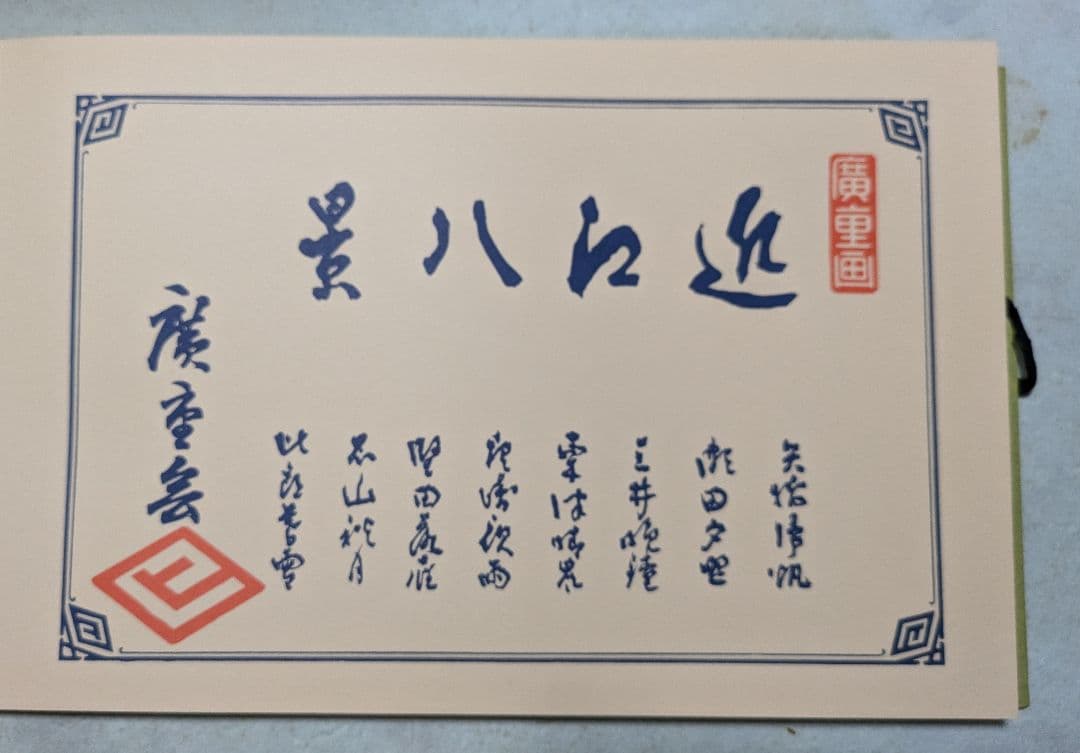 廣重画
近江八景
矢橋帰帆
瀬田夕照
三井晩鐘
粟津晴嵐
唐崎夜雨
堅田落雁
石山秋月
比良暮雪
廣重会